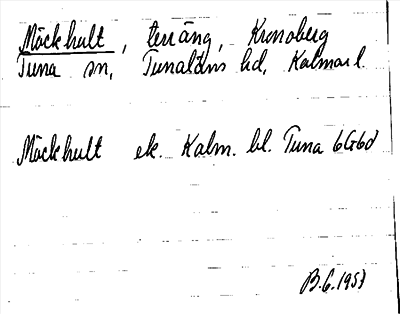 Möckhult, terräng, Kronoberg
Tuna sn, Tunaläns hd, Kalmar l.
Möckhult ek. Kalm. bl. Tuna 6G6d
B.G. 1953